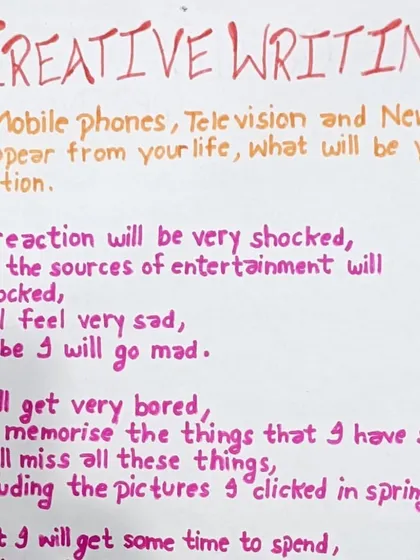 CREATIVE WRITIN
Mobile phones, Television and New
ppear from your life, what will be y
tion.
reaction will be very shocked,
the sources of entertainment will
ocked,
l feel very sad,
be I will go mad.
ll get very bored,
memorise the things that I have s
ll miss all these things,
uding the pictures I clicked in spring
t I will get some time to spend,